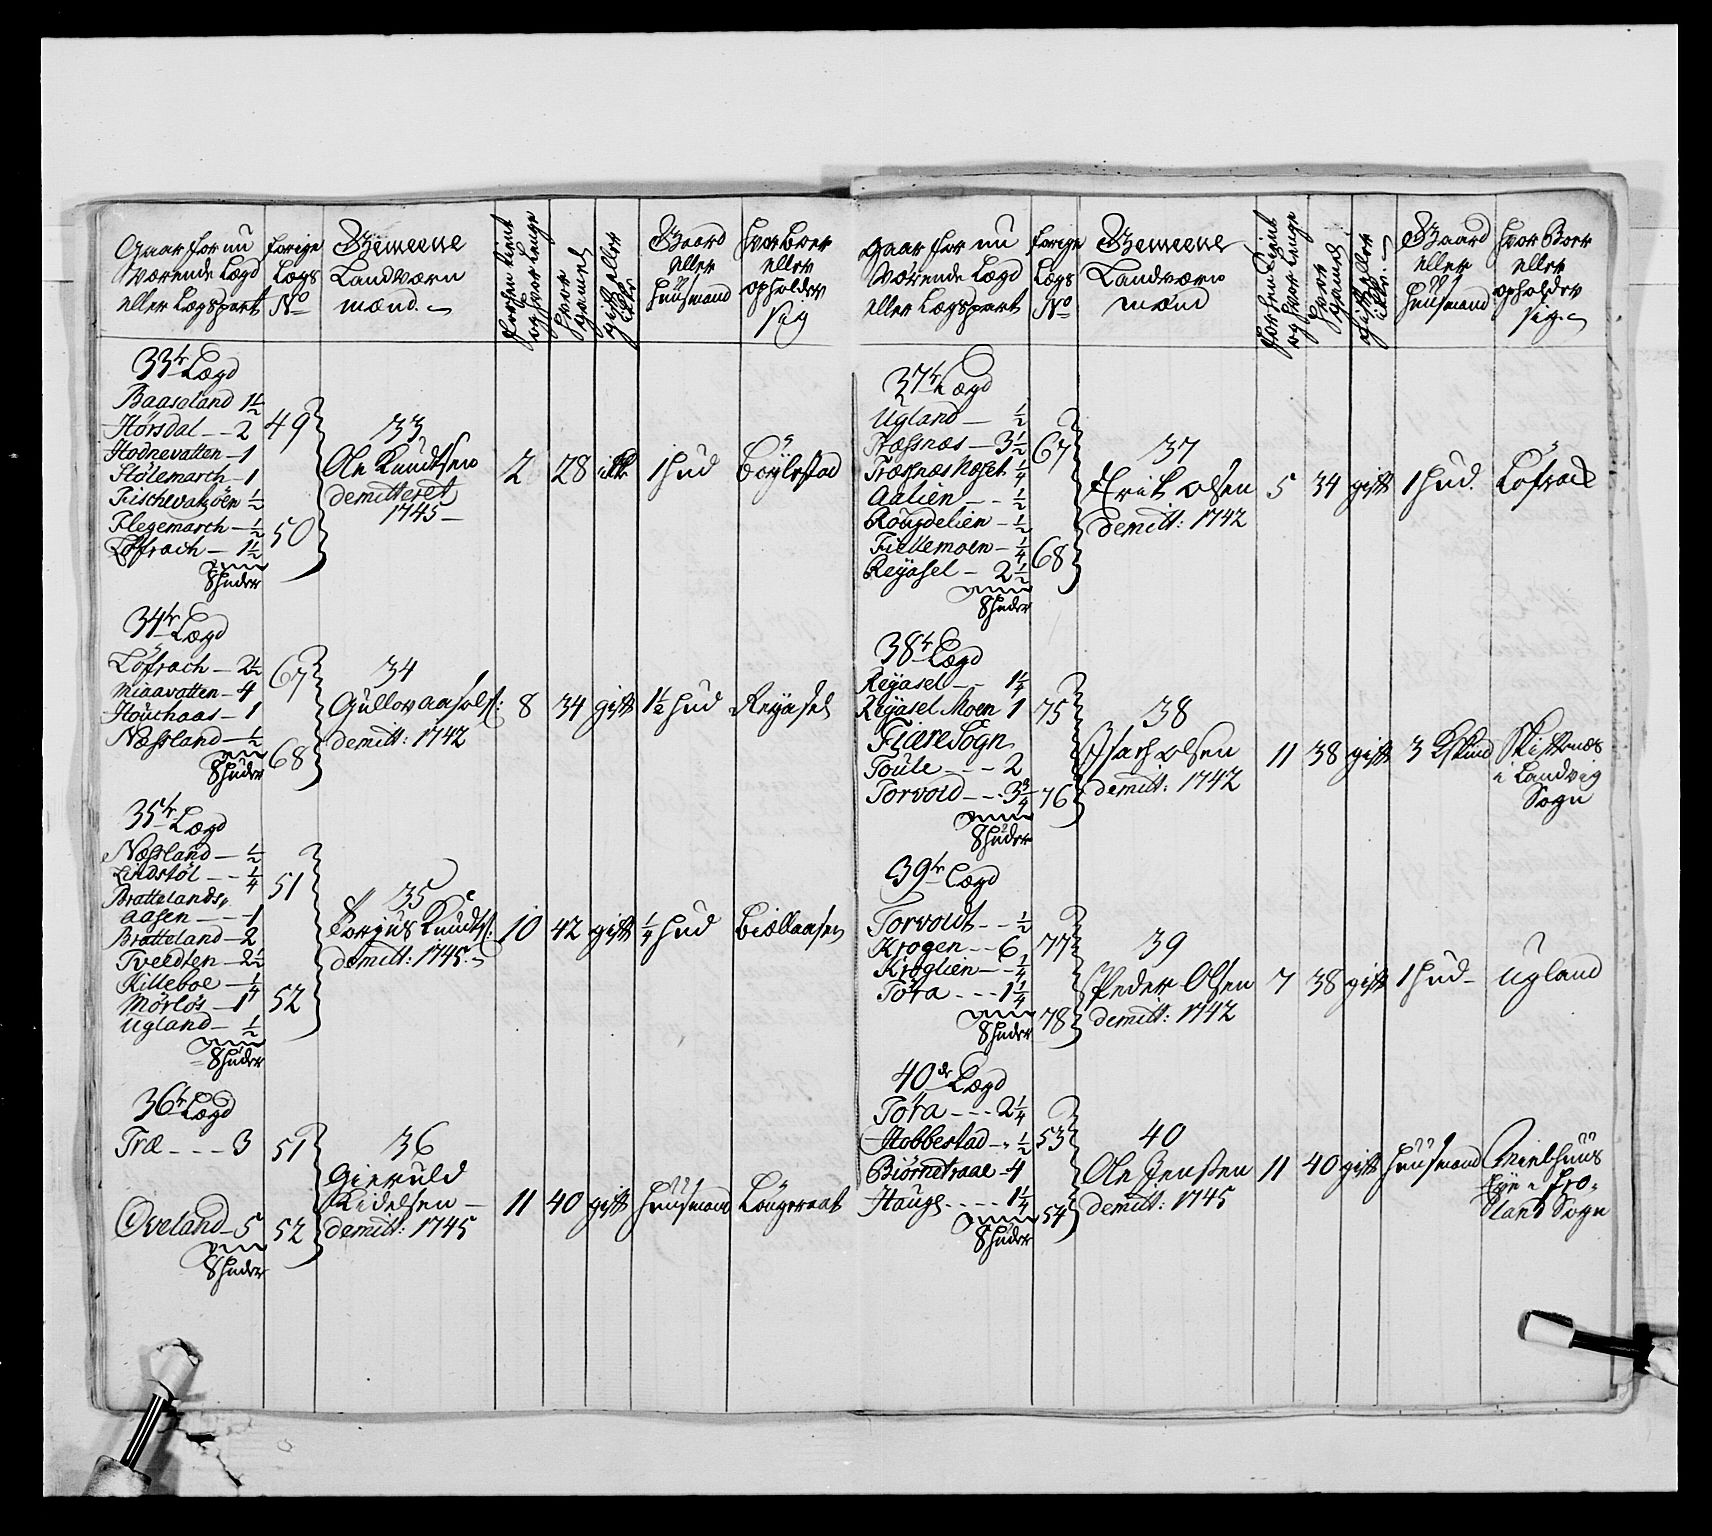 Gaar for nu
værende Lægd
eller Lægspart
forige
Lægs
No
Gemeene
Landværn
mænd.
forhen tient
og hvor lenge
hvor
gammel
gift eller
ikke
Gaard
eller
huusmand
hvor boer
eller
opholder
sig
33te Lægd
Baaseland 1½
Hørsdal - - 2
49
Hodnevatten - 1
Stølemarch - 1
½
Flegemarch - ½
50
Løfrach - 1½
8 huder
33
Ole Knudtsen
demitteret
1745
2
28
ikke
1 hud
Bøylestad
34te Lægd
Løfrach - 2½
67
Miaavatten - 4
Houchaas - 1
Næssland - ½
68
8 huder
34
Gullov Aasols:
demitt: 1742
8
34
gift
1½ hud
Reyasel
35te Lægd
Næssland - ½
Lindstøl - - ¼
51
Brattelands
aasen - - - 1
Bratteland - 2
Tveedten - 2½
Killeboe - ¼
Mørløs - 1
52
Ugland - ½
8 huder
35
Torjus Knudts:
demitt: 1745
10
42
gift
¼ hud
Biellaasen
36te Lægd
Træ - - - 3
51
Øveland - 5
52
8 huder
36
Gieruld
Kidelsen
demitt: 1745
11
40
gift
huusmand
Lougeraat
Gaar for nu
værende Lægd
eller Lægspart
forige
Lægs
No
Gemeene
Landværn
mænd
forhen tient
og hvor lenge
hvor
gammel
gift eller
ikke
Gaard
eller
huusmand
hvor Boer
eller
opholder
sig
37te Lægd
Ugland - ½
Træfnæs - 3½
67
Træfnæs Næset ¼
Aalien - - ½
Rougdelien - ½
Fickemoen - ¼
68
Reyasel - 2½
8 huder
37
Erik Olsen
demitt: 1742
5
34
gift
1 hud
Løfrach
38te Lægd
Reyasel - - 1¼
Reyasel Moen 1
75
Fiære Sogn
Toule - - - 2
Torvold - - 3¾
76
8 huder
38
Isach Olsen
demitt: 1742
11
38
gift
3 Gskind
Skiftenæs
i Landvig
Sogn
39te Lægd
Torvoldt - - ½
Krogen - - 6
77
Kroglien - - ¼
Töra - - - 1¼
78
8 huder
39
Peder Olsen
demitt: 1742
7
38
gift
1 hud
Ugland
40de Lægd
Töra - - - 2¼
Hobbestad - ½
53
Biørnetraae - 4
Hauge - - - 1¼
54
8 huder
40
Ole Jensen
demitt: 1745
11
40
gift
huusmand
Mielhuus
Eye i Fro-
land Sogn